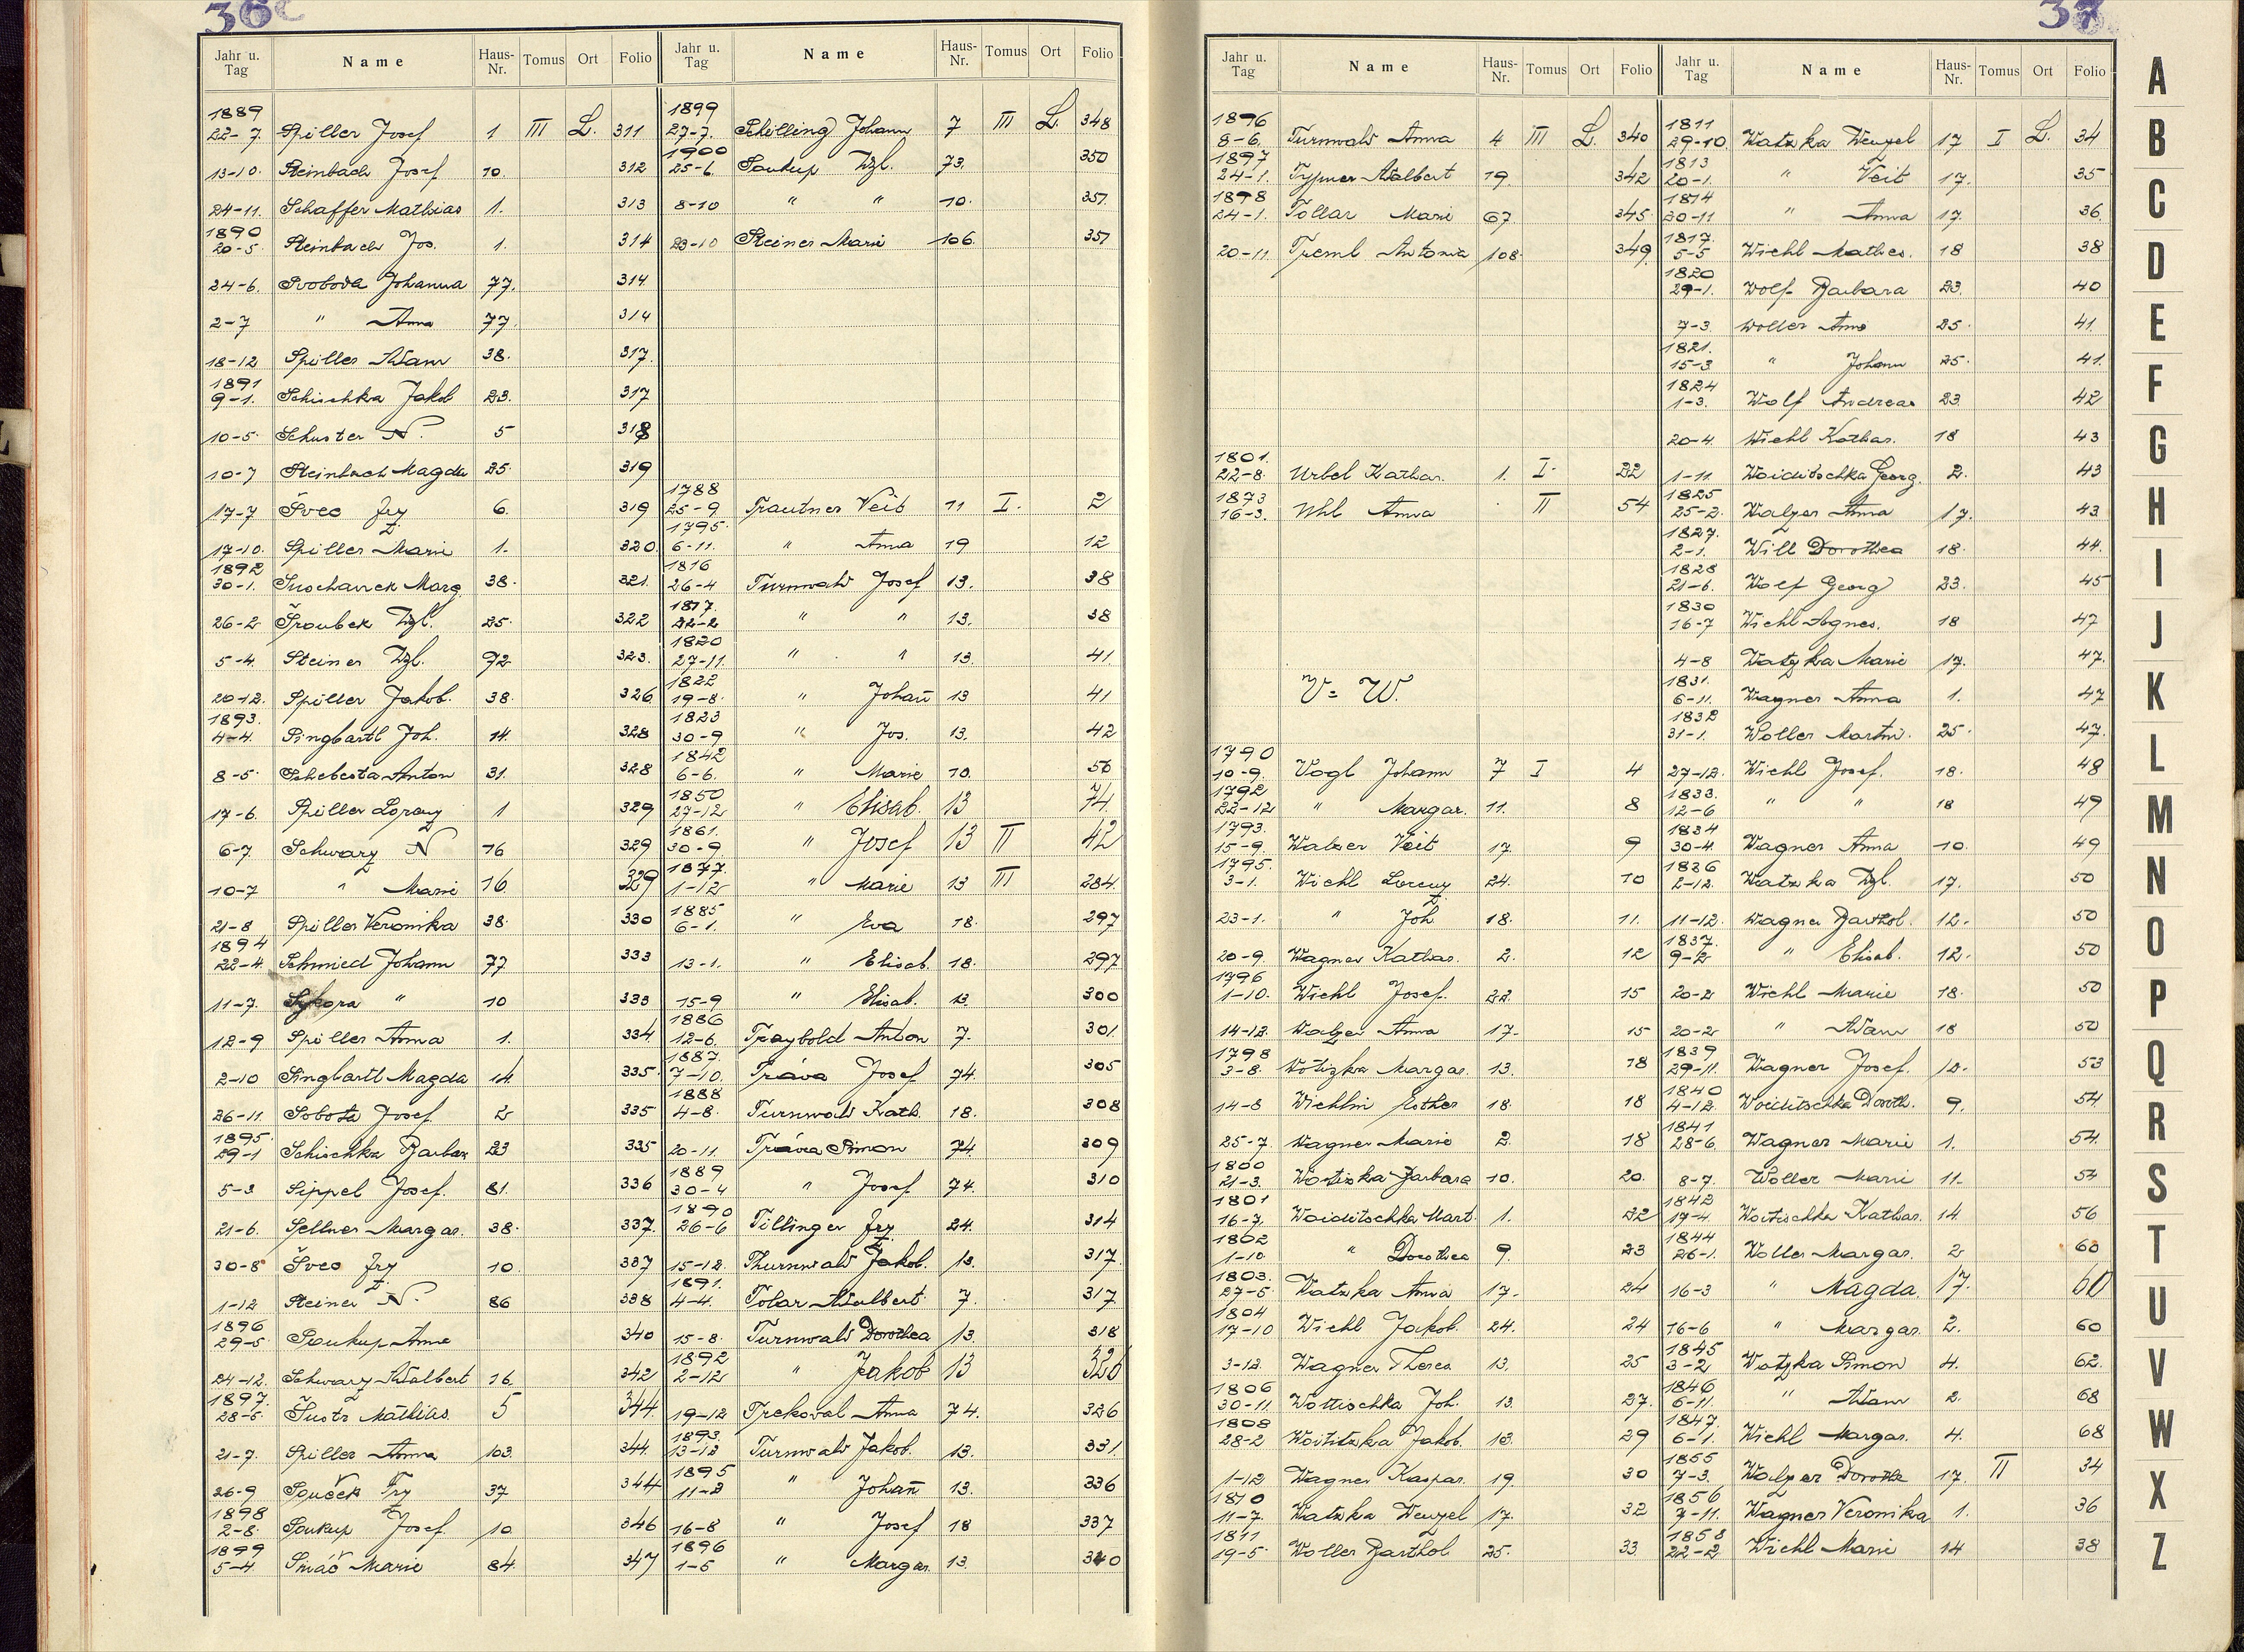 36
Jahr u. Tag Name Haus-Nr. Tomus Ort Folio
1889
22-7. Spiller Josef 1 III L. 311
13-10. Steinbach Josef 10. 312
24-11. Schaffer Mathias 1. 313
1890
20-5. Steinbach Jos. 1. 314
24-6. Svoboda Johanna 77. 314
2-7 " Anna 77. 314
18-12 Spiller Adam 38. 317.
1891
9-1. Schischka Jakob 23. 317
10-5. Schuster N. 5 318
10-7 Steinbach Magda 25. 319
17-7 Švec Frz 6. 319
17-10. Spiller Marie 1. 320.
1892
30-1. Suchanek Marg. 38. 321.
26-2 Šroubek Wzl. 25. 322
5-4. Steiner Wzl. 92 323.
20-12. Spiller Jakob. 38. 326
1893.
4-4. Singbartl Joh. 14. 328
8-5. Schebesta Anton 31. 328
17-6. Spiller Lorenz 1 329
6-7. Schwarz N 16 329
10-7 " Marie 16 329
21-8 Spiller Veronika 38. 330
1894
22-4. Schmied Johann 77. 333
11-7. Sykora " 10 333
12-9 Spiller Anna 1. 334
2-10 Singbartl Magda 14. 335.
26-11. Sobota Josef 2 335
1895.
29-1 Schischka Barbar 23 335
5-3 Sippel Josef. 81. 336
21-6. Sellner Margar. 38. 337.
30-8 Švec Frz 10. 337
1-12 Steiner N. 86 338
1896
29-5. Soukup Anna 340
24-12. Schwarz Adalbert 16. 342
1897.
28-5. Šustr Mathias 5 344.
21-7. Spiller Anna 103. 344.
26-9 Souček Frz 37 344
1898
2-8. Soukup Josef. 10. 346
1899
5-4. Marie 84. 347
Jahr u. Tag Name Haus-Nr. Tomus Ort Folio
1899
27-7. Schilling Johann 7 III L. 348
1900
25-6. Soukup Wzl. 73. 350
8-10 " " 10. 351
23-10 Steiner Marie 106. 351
1788
25-9. Trautner Veit 11 I. 2
1795.
6-11. " Anna 19 12
1816
26-4 Turnwald Josef 13. 38
1817.
22-2 " " 13. 38
1820
27-11. " " 13. 41
1822
19-8. " Johan̄ 13 41
1823
30-9 " Jos. 13. 42
1842
6-6. " Marie 10. 56
1850
27-12 " Elisab. 13 74
1861.
30-9 " Josef 13 II 42
1877.
1-12 " Marie 13 III 284.
1885
6-1. " Eva 18. 297
13-1. " Elisab. 18. 297
15-9 " Elisab. 13 300
1886
12-6. Traybold Anton 7. 301.
1887.
7-10. Tráva Josef 74. 305
1888
4-8. Turnwald Kath. 18. 308
20-11. Tráva Simon 74. 309
1889
30-4 " Josef 74. 310
1890
26-6 Tillinger Frz. 24. 314
15-12. Thurnwald Jakob. 13. 317.
1891.
4-4. Tolar Adalbert 7. 317
15-8. Turnwald Dorothea 13. 318
1892
2-12 " Jakob 13 326
19-12 Trekoval Anna 74. 326
1893.
13-12 Turnwald Jakob. 13. 331.
1895
11-3 " Johan̄ 13. 336
16-8 " Josef 18 337
1896
1-5 " Margar. 13. 340
37
Jahr u. Tag Name Haus-Nr. Tomus Ort Folio
1896
8-6. Turnwald Anna 4 III L. 340
1897
24-1. Adalbert 19. 342
1898
24-1. Tollar Marie 67. 345.
20-11 Treml Antonia 108. 349.
1801.
22-8. Urbel Kathar. 1. I. 22
1873
16-3. Uhl Anna II 54
V = W.
1790
10-9. Vogl Johann 7 I 4
1792
22-12 " Margar. 11. 8
1793.
15-9. Walzer Veit 17 9
1795.
3-1. Wichl Lorenz 24. 10
23-1. " Joh 18. 11.
20-9. Wagner Kathar. 2. 12
1796
1-10. Wichl Josef. 22. 15
14-12. Walzer Anna 17. 15
1798
3-8. Margar. 13. 18
14-8 Wichlin Esther 18. 18
25-7. Wagner Marie 2. 18
1800
21-3. Barbara 10. 20.
1801
16-7. Woiditschka Mart. 1. 22
1802
1-10. " Dorothea 9. 23
1803.
27-5. Watzka Anna 17. 24
1804
17-10 Wichl Jakob. 24. 24
3-12. Wagner Theres 13. 25
1806
30-11. Wottischka Joh. 13. 27.
1808
28-2 Woititzka Jakob. 13. 29
1-12 Wagner Kaspar. 19. 30
1810
11-7. Watzka Wenzel 17. 32
1811
19-5. Woller Barthol 25. 33.
Jahr u. Tag Name Haus-Nr. Tomus Ort Folio
1811
29-10. Watzka Wenzel 17 I L. 34
1813
20-1. " Veit 17. 35
1814
30-11 " Anna 17. 36.
1817.
5-5 Wichl Mathes. 18 38
1820
29-1. Wolf Barbara 23. 40
7-3. Woller Anna 25. 41.
1821.
15-3 " Johann 25. 41.
1824
1-3. Wolf Andreas 23. 42
20-4. Wichl Kathar. 18 43
1-11. Woiditschka Georg. 2. 43
1825
25-2. Walzer Anna 17. 43
1827.
2-1. Will Dorothea 18. 44.
1828
21-6. Wolf Georg 23. 45
1830
16-7 Wichl Agnes. 18 47
4-8 Watzka Marie 17. 47.
1831.
6-11. Wagner Anna 1. 47
1832
31-1. Woller Martin. 25. 47.
27-12. Wichl Josef. 18. 48
1833.
12-6 " " 18 49
1834
30-4. Wagner Anna 10. 49
1836
2-12. Watzka Wzl. 17. 50
11-12. Wagner Barthol. 12. 50
1837.
9-2 " Elisab. 12. 50
20-2 Wichl Marie 18. 50
20-2 " Adam 18 50
1839
29-11. Wagner Josef. 10. 53
1840
4-12. Woiditschka Doroth. 9. 54
1841
28-6. Wagner Marie 1. 54.
8-7. Woller Marie 11. 54
1842
17-4. Woitischka Kathar. 14. 56
1844
26-1. Woller Margar. 2 60
16-3 " Magda 17. 60
16-6 " Margar. 2. 60
1845
3-2 Watzka Simon 4. 62.
1846
6-11. " Adam 2. 68
1847.
6-1. Wichl Margar. 4. 68
1855
7-3. Walzer Doroth 17. II 34
1856
7-11. Wagner Veronika 1. 36
1858
22-2 Wichl Marie 14 38
A
B
C
D
E
F
G
H
I
J
K
L
M
N
O
P
Q
R
S
T
U
V
W
X
Z